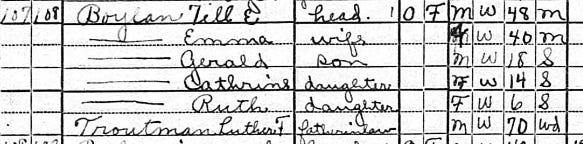 107 108 Boylan Tell E head. 1 O F M W 48 M
Emma wife F W 40 M
Gerald son M W 18 S
Cathrine daughter F W 14 S
Ruth daughter F W 6 S
Troutman Luther F fatherinlaw M W 70 Wd